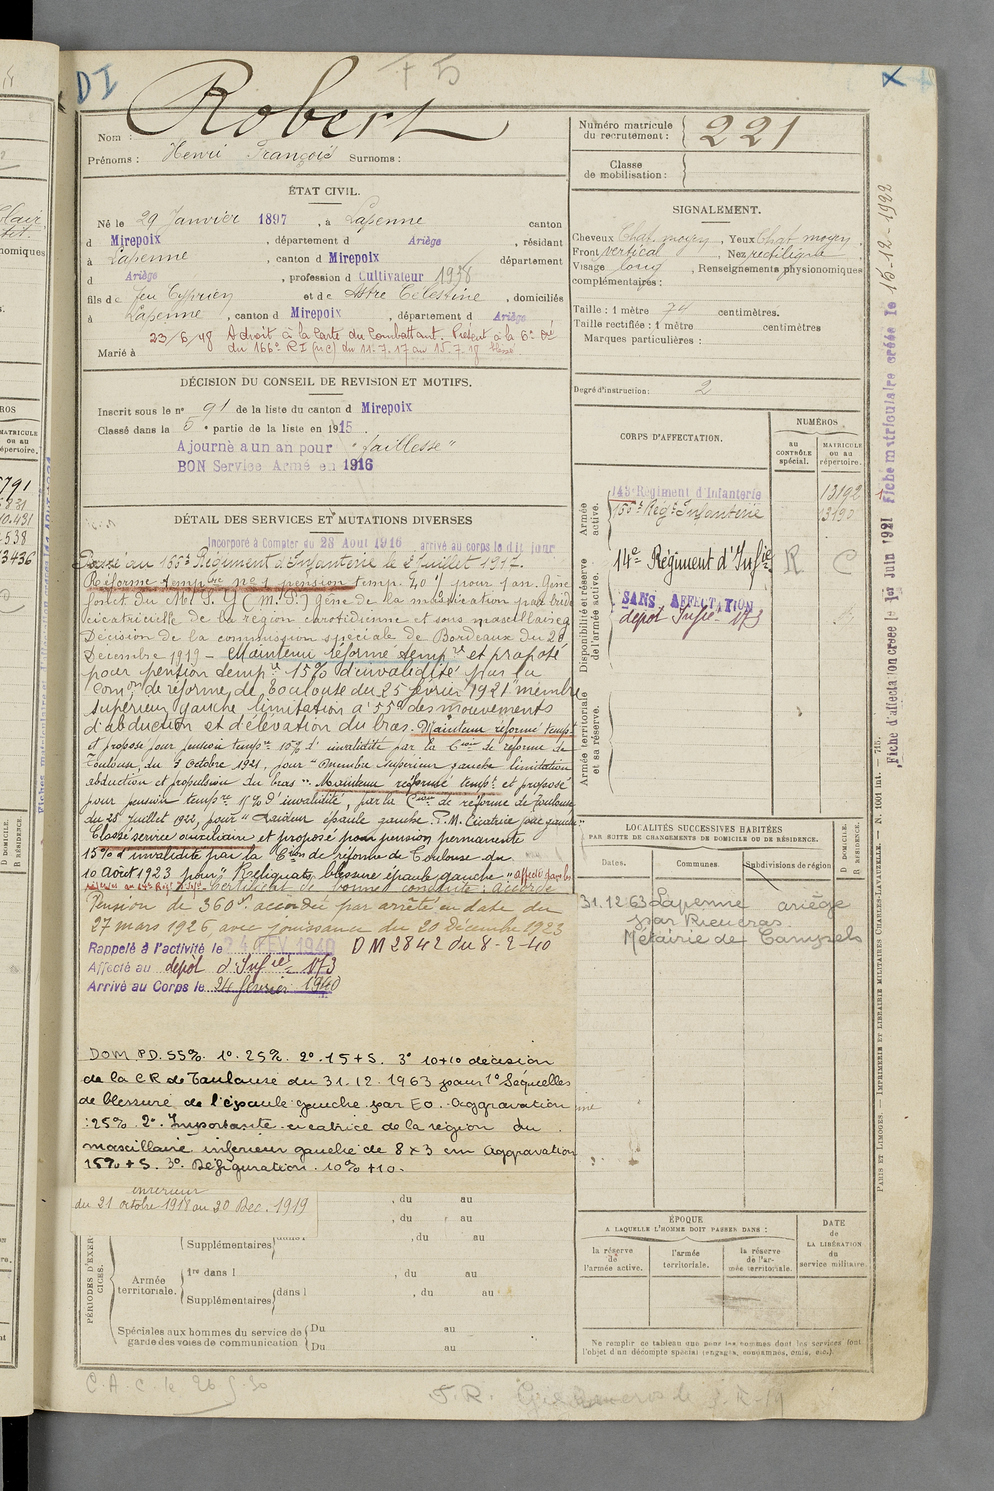 DI
F 5
X
Nom : Robert
Prénoms : Henri François Surnoms :
Numéro matricule du recrutement : 221
Classe de mobilisation :
ÉTAT CIVIL.
Né le 29 Janvier 1897, à Lapenne canton
d Mirepoix, département d Ariège, résidant
à Lapenne, canton d Mirepoix département
d Ariège, profession d Cultivateur
fils de feu Cyprien et de Astre Célestine, domiciliés
à Lapenne, canton d Mirepoix, département d Ariège
23/6/48 A droit à la Carte du Combattant. Présent à la 6e Cie
du 166e RI (nc) du 11-7-17 au 15-7-18 blessé.
Marié à
DÉCISION DU CONSEIL DE REVISION ET MOTIFS.
Inscrit sous le n° 91 de la liste du canton d Mirepoix
Classé dans la 5e partie de la liste en 1915
Ajourné a un an pour "faiblesse"
BON Service Armé en 1916
DÉTAIL DES SERVICES ET MUTATIONS DIVERSES
Incorporé à Compter du 28 Août 1916 arrivé au corps le dit jour
Passé au 155e Régiment d'Infanterie le 2 Juillet 1917.
Réforme temp-re n° 1 pension temp. 40 % pour
gêne de la mastication par bride
cicatricielle de la région carotidienne et sous maxillaire g
Décision de la commission spéciale de Bordeaux du 20
Décembre 1919 - Maintenu réformé temp-re et proposé
pour pension temp-re 15 % d'invalidité par la
Com-on de réforme de Toulouse du 25 février 1921 membre
supérieur gauche limitation à 55° des mouvements
d'abduction et d'élévation du bras. Maintenu réformé temp-
et proposé pour pension temp-re 15 % d'invalidité par la C-ion de réforme de
Toulouse du 7 Octobre 1921, pour "membre supérieur gauche limitation
abduction et propulsion du bras". Maintenu réformé temp-t et proposé
pour pension temp-re 15 % d'invalidité, par la C-ion de réforme de Toulouse
du 28 Juillet 1922, pour "Raideur épaule gauche. P.M. Cicatrice joue gauche"
Classé service auxiliaire et proposé pour pension permanente
15 % d'invalidité par la C-ion de réforme de Toulouse du
10 Août 1923 pour "Reliquats blessure épaule gauche".
Certificat de bonne conduite : accordé
Pension de 360f accordée par arrêté en date du
27 mars 1926, avec jouissance du 20 Décembre 1923
Rappelé à l'activité le 24 FEV 1940 DM 2842 du 8-2-40
Affecté au dépôt d'Inf-ie 173
Arrivé au Corps le 24 février 1940
DOM PD. 55%. 1° 25%. 2° 15+5. 3° 10+10 décision
de la CR de Toulouse du 31.12.1963 pour 1° Séquelles
de blessure de l'épaule gauche par EO. Aggravation
: 25%. 2° Importante cicatrice de la région du
maxillaire inférieur gauche de 8 x 3 cm Aggravation
15% + 5. 3° Défiguration. 10% + 10.
intérieur
du 21 octobre 1918 au 30 Dec. 1919
, du au
, du au
Supplémentaires dans l , du au
PÉRIODES D'EXERCICES.
Armée territoriale.
1re dans l , du au
Supplémentaires dans l , du au
Spéciales aux hommes du service de garde des voies de communication
Du au
Du au
SIGNALEMENT.
Cheveux Chat. moyen, Yeux Chat moyen
Front vertical, Nez rectiligne
Visage long, Renseignements physionomiques
complémentaires :
Taille : 1 mètre 74 centimètres.
Taille rectifiée : 1 mètre centimètres
Marques particulières :
Degré d'instruction : 2
CORPS D'AFFECTATION.
NUMÉROS
au CONTRÔLE spécial.
MATRICULE ou au répertoire.
Armée active.
143e Régiment d'Infanterie 13192
155e Rég-t Infanterie
Disponibilité et réserve de l'armée active.
14e Régiment d'Inf-ie R C
SANS AFFECTATION
dépôt Inf-ie 173
Armée territoriale et sa réserve.
LOCALITÉS SUCCESSIVES HABITÉES
PAR SUITE DE CHANGEMENTS DE DOMICILE OU DE RÉSIDENCE.
Dates. Communes. Subdivisions de région
D DOMICILE.
R RÉSIDENCE.
31.12.63 Lapenne ariège
par Rieucros
Métairie de Campels
ÉPOQUE
A LAQUELLE L'HOMME DOIT PASSER DANS :
la réserve de l'armée active.
l'armée territoriale.
la réserve de l'armée territoriale.
DATE de LA LIBÉRATION du service militaire
Ne remplir ce tableau que pour les hommes dont les services font
l'objet d'un décompte spécial (engagés, condamnés, omis, etc.).
Fiche d'affectation créée le 1er Juin 1921 Fiche matriculaire créée le 15-12-1922
PARIS ET LIMOGES. — IMPRIMERIE ET LIBRAIRIE MILITAIRES CHARLES-LAVAUZELLE. — N. 1001 int. — 715.